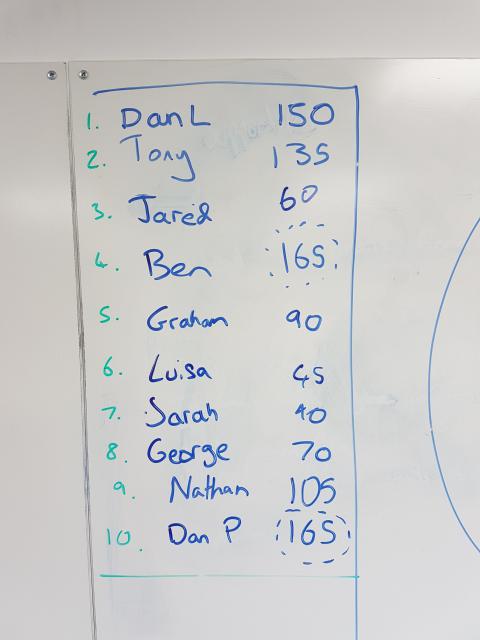 1. Dan L 150
2. Tony 135
3. Jared 60
4. Ben 165
5. Graham 90
6. Luisa 45
7. Sarah 40
8. George 70
9. Nathan 105
10. Dan P 165